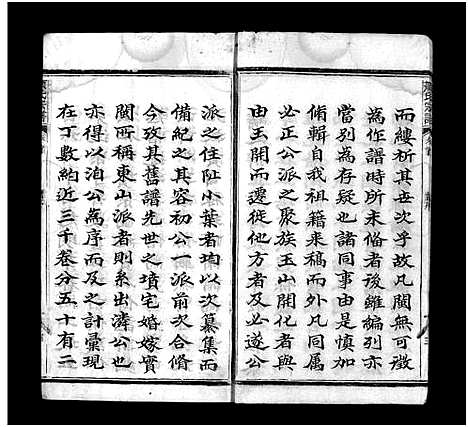 而縷析其世次乎故凡闕無可徵
為作譜時所未備者後雖編列亦
當別為存疑也諸同事由是慎加
脩輯自我祖籍来稿而外凡同属
必正公派之聚族玉山開化者與
由王開而遷徙他方者及必遂公
派之住阯小葉者均以次纂集而
備紀之其容初公一派前次合脩
今攷其舊譜先世之墳宅婚嫁實
閩所稱東山派者則系出濟公
亦得以泊公為序而及之計彙現
在丁數約近三千卷分五十有二